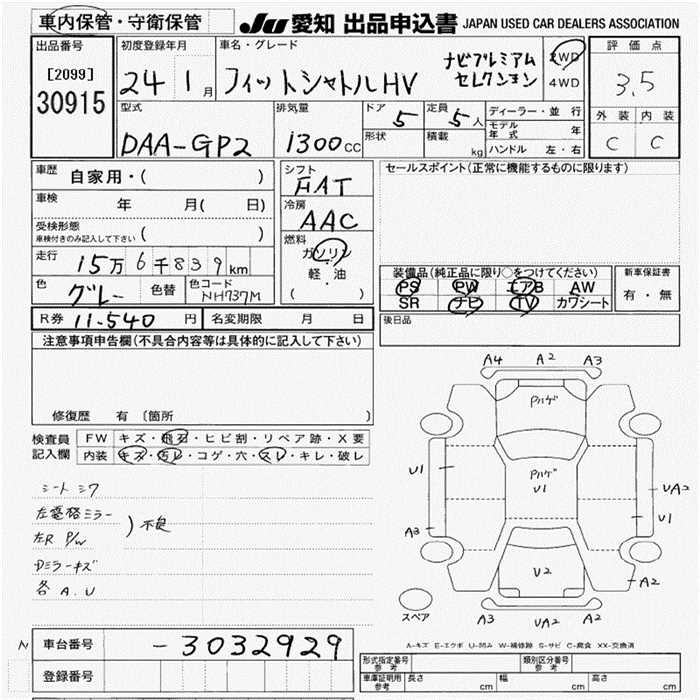 車内保管・守衛保管
JU 愛知 出品申込書 JAPAN USED CAR DEALERS ASSOCIATION
出品番号
[2099]
30915
初度登録年月
24 1月
車名・グレード
フィットシャトルHV
ナビプレミアム
セレクション
2WD
4WD
評価点
3.5
外装 内装
C C
型式
DAA-GP2
排気量
1300cc
ドア
5
形状
定員
5人
積載
kg
ディーラー・並行
モデル年式 年
ハンドル 左・右
車歴
自家用・( )
車検
年 月( 日)
受検形態
車検付きのみ記入して下さい ( )
走行
15万6千839km
色
グレー
色替
色コード
NH737M
シフト
FAT
冷房
AAC
燃料
ガソリン
軽・油
( )
セールスポイント(正常に機能するものに限ります)
装備品(純正品に限り○をつけてください)
PS PW エアB AW
SR ナビ TV カワシート
新車保証書
有・無
R券 11.540 円
名変期限 月 日
後日品
注意事項申告欄(不具合内容等は具体的に記入して下さい)
修復歴 有 〔箇所 〕
検査員記入欄
FW キズ・飛石・ヒビ割・リペア跡・X要
内装 キズ・汚レ・コゲ・穴・スレ・キレ・破レ
シートシワ
左電格ミラー
左R P/W
) 不良
Dミラーキズ
各A.U
A4 A2 A3
Pハゲ
Pハゲ
U1
U1
UA2
U1
A3
U2
A2
A3 UA2 A2
スペア
A-キズ E-エクボ U-凹み W-補修跡 S-サビ C-腐食 XX-交換済
N
車台番号
-3032929
登録番号
形式指定番号
参考
類別区分番号
参考
車庫証明用
参考
長さ cm
幅 cm
高さ cm